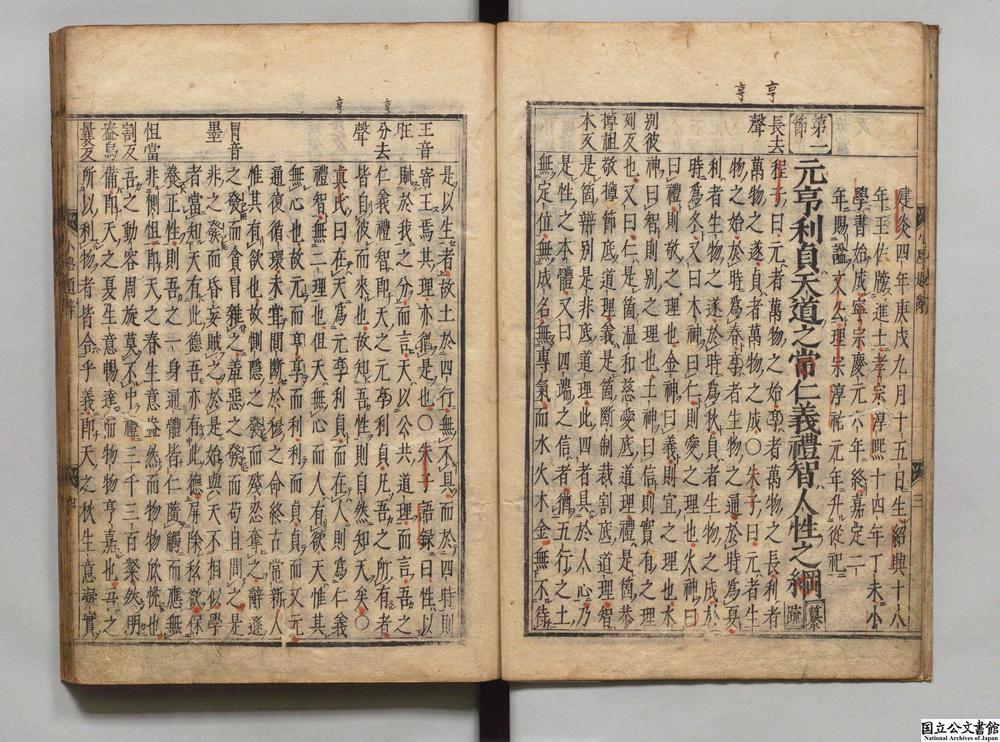 亨
亨
建炎四年庚戌九月十五日生紹興十八
年王佐牓進士孝宗淳熙十四年丁未小
學書始成寧宗慶元六年終嘉定二
年賜謚文公理宗淳祐元年升從祀
第一節
元亨利貞天道之常仁義禮智人性之綱
纂疏
長去聲
程子曰元者萬物之始亨者萬物之長利者
萬物之遂貞者萬物之成〇朱子曰元者生
物之始於時爲春亨者生物之通於時爲夏
利者生物之遂於時爲秋貞者生物之成於
時爲冬又曰木神曰仁則愛之理也火神曰
曰禮則敬之理也金神曰義則宜之理也水
別彼列反
神曰智則別之理也土神曰信則實有之理
也又曰仁是箇溫和慈愛底道理禮是箇恭
敬撙節底道理義是箇斷制裁割底道理智
是箇辦別是非底道理此四者具於人心乃
是性之本體又曰四端之信者猶五行之土
無定位無成名無專氣而水火木金無不待
小學題辭
三
亨
亨
是以生者故土於四行無不具而於四時則
王音旺
寄王焉其理亦猶是也〇朱子語錄曰性以
分去聲
賦於我之分而言天以公共道理而言吾之
仁義禮智即天之元亨利貞凡吾之所有者
皆自彼而來也故知吾性則自然知天矣〇
真氏曰在天爲元亨利貞而在人則爲仁義
禮智無二理也但天無心而人有欲天惟其
無心也故元而亨亨而利利而貞貞而又元
通復循環未嘗間斷於穆之命終古常新人
惟其有欲也故惻隱之發而殘忍奪之辭遜
冒音墨
之發而貪冒雜之羞惡之發而苟且間之是
非之發而昏妄賊之於是始與天不相似學
者當知天有此德吾亦有此德屏除私欲保
養正性則吾之一身通體皆仁隨觸而應無
怛當割反
非惻怛即天之春生意盎然而物物欣悅也
吾之動容周旋莫不中禮三千三百粲然明
盎烏曩反
備即天之夏生意暢達而物物嘉也吾之
所以利物者皆合乎義即天之秋生意凝實
小學題辭
四
国立公文書館
National Archives of Japan